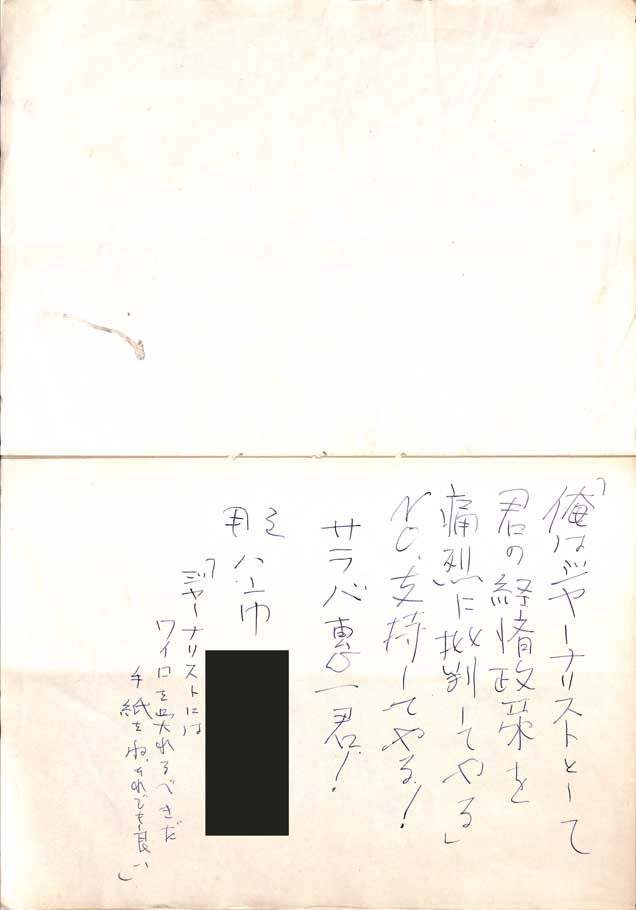 「俺はジャーナリストとして
君の経済政策を
痛烈に批判してやる」
NO.支持してやる!
サラバ恵一君!
「ジャーナリストには
ワイロを呉れるべきだ
手紙をね。それでも良い」